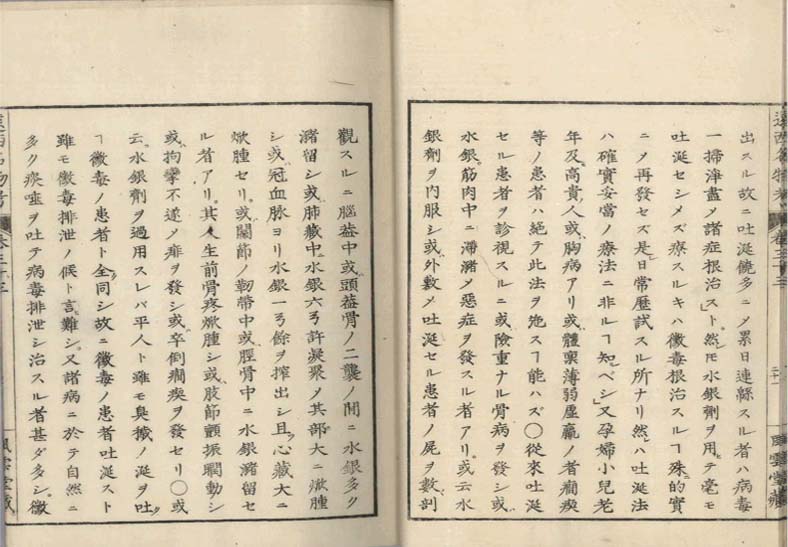 遠西名物考 卷三十三 風雲堂藏
出スル故ニ吐涎饒多ニメ累日連緜スル者ハ病毒
一掃淨盡メ諸症根治スト然モ水銀劑ヲ用テ毫モ
吐涎セシメズ療スルキハ黴毒根治スルヿ殊的實
ニメ再發セズ是日常歷試スル所ナリ然ハ吐涎法
ハ確實妥當ノ療法ニ非ルヿ知ベシ又孕婦小兒老
年及高貴人或胸病アリ或體稟薄弱尫羸ノ者癇瘈
等ノ患者ハ絕テ此法ヲ施スヿ能ハズ〇從來吐涎
セル患者ヲ診視スルニ或險重ナル骨病ヲ發シ或
水銀筋肉中ニ滯瀦メ惡症ヲ發スル者アリ或云水
銀劑ヲ內服シ或外敷メ吐涎セル患者ノ屍ヲ數剖
觀スルニ腦葢中或頭葢骨ノ二襲ノ間ニ水銀多ク
瀦留シ或肺藏中水銀六ヲ許凝聚メ其部大ニ焮腫
シ或冠血脉ヨリ水銀一ヲ餘ヲ搾出シ且心藏大ニ
焮腫セリ或關節ノ勒帶中或脛骨中ニ水銀瀦留セ
ル者アリ其人生前骨疼焮腫シ或肢節顫振瞤動シ
或拘攣不遂メ痱ヲ發シ或卒倒癇瘈ヲ發セリ〇或
云水銀劑ヲ過用スレバ平人ト雖モ臭穢ノ涎ヲ吐
ヿ黴毒ノ患者ト全同シ故ニ黴毒ノ患者吐涎スト
雖モ黴毒排泄ノ候ト言難シ又諸病ニ於テ自然ニ
多ク痰唾ヲ吐テ病毒排泄シ治スル者甚ダ多シ黴
遠西名物考 卷三十三 風雲堂藏